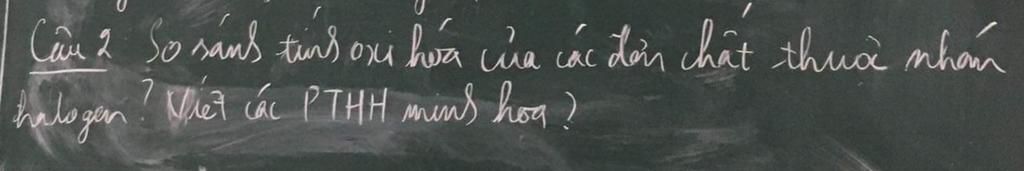 Câu 2 So sánh tính oxi hóa của các đơn chất thuộc nhóm
halogen? Viết các PTHH minh họa?